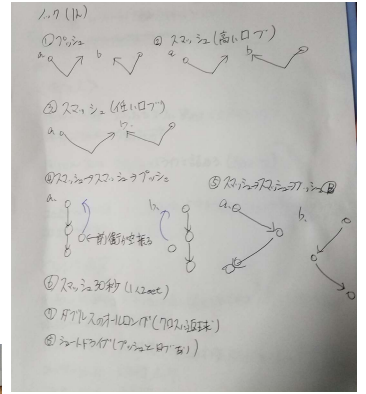 ノック(1人)
①プッシュ
a.
b
② スマッシュ(高いロブ)
a.
b.
③ スマッシュ(低いロブ)
a.
b.
④スマッシュ→スマッシュ→プッシュ
a.
b.
⑤スマッシュ→スマッシュ→プッシュⒷ
a.
b.
⑥スマッシュ30秒(1人2set)
⑦ダブルスのオールロング(クロスへ返球)
⑧ショートドライブ(プッシュとロブあり)